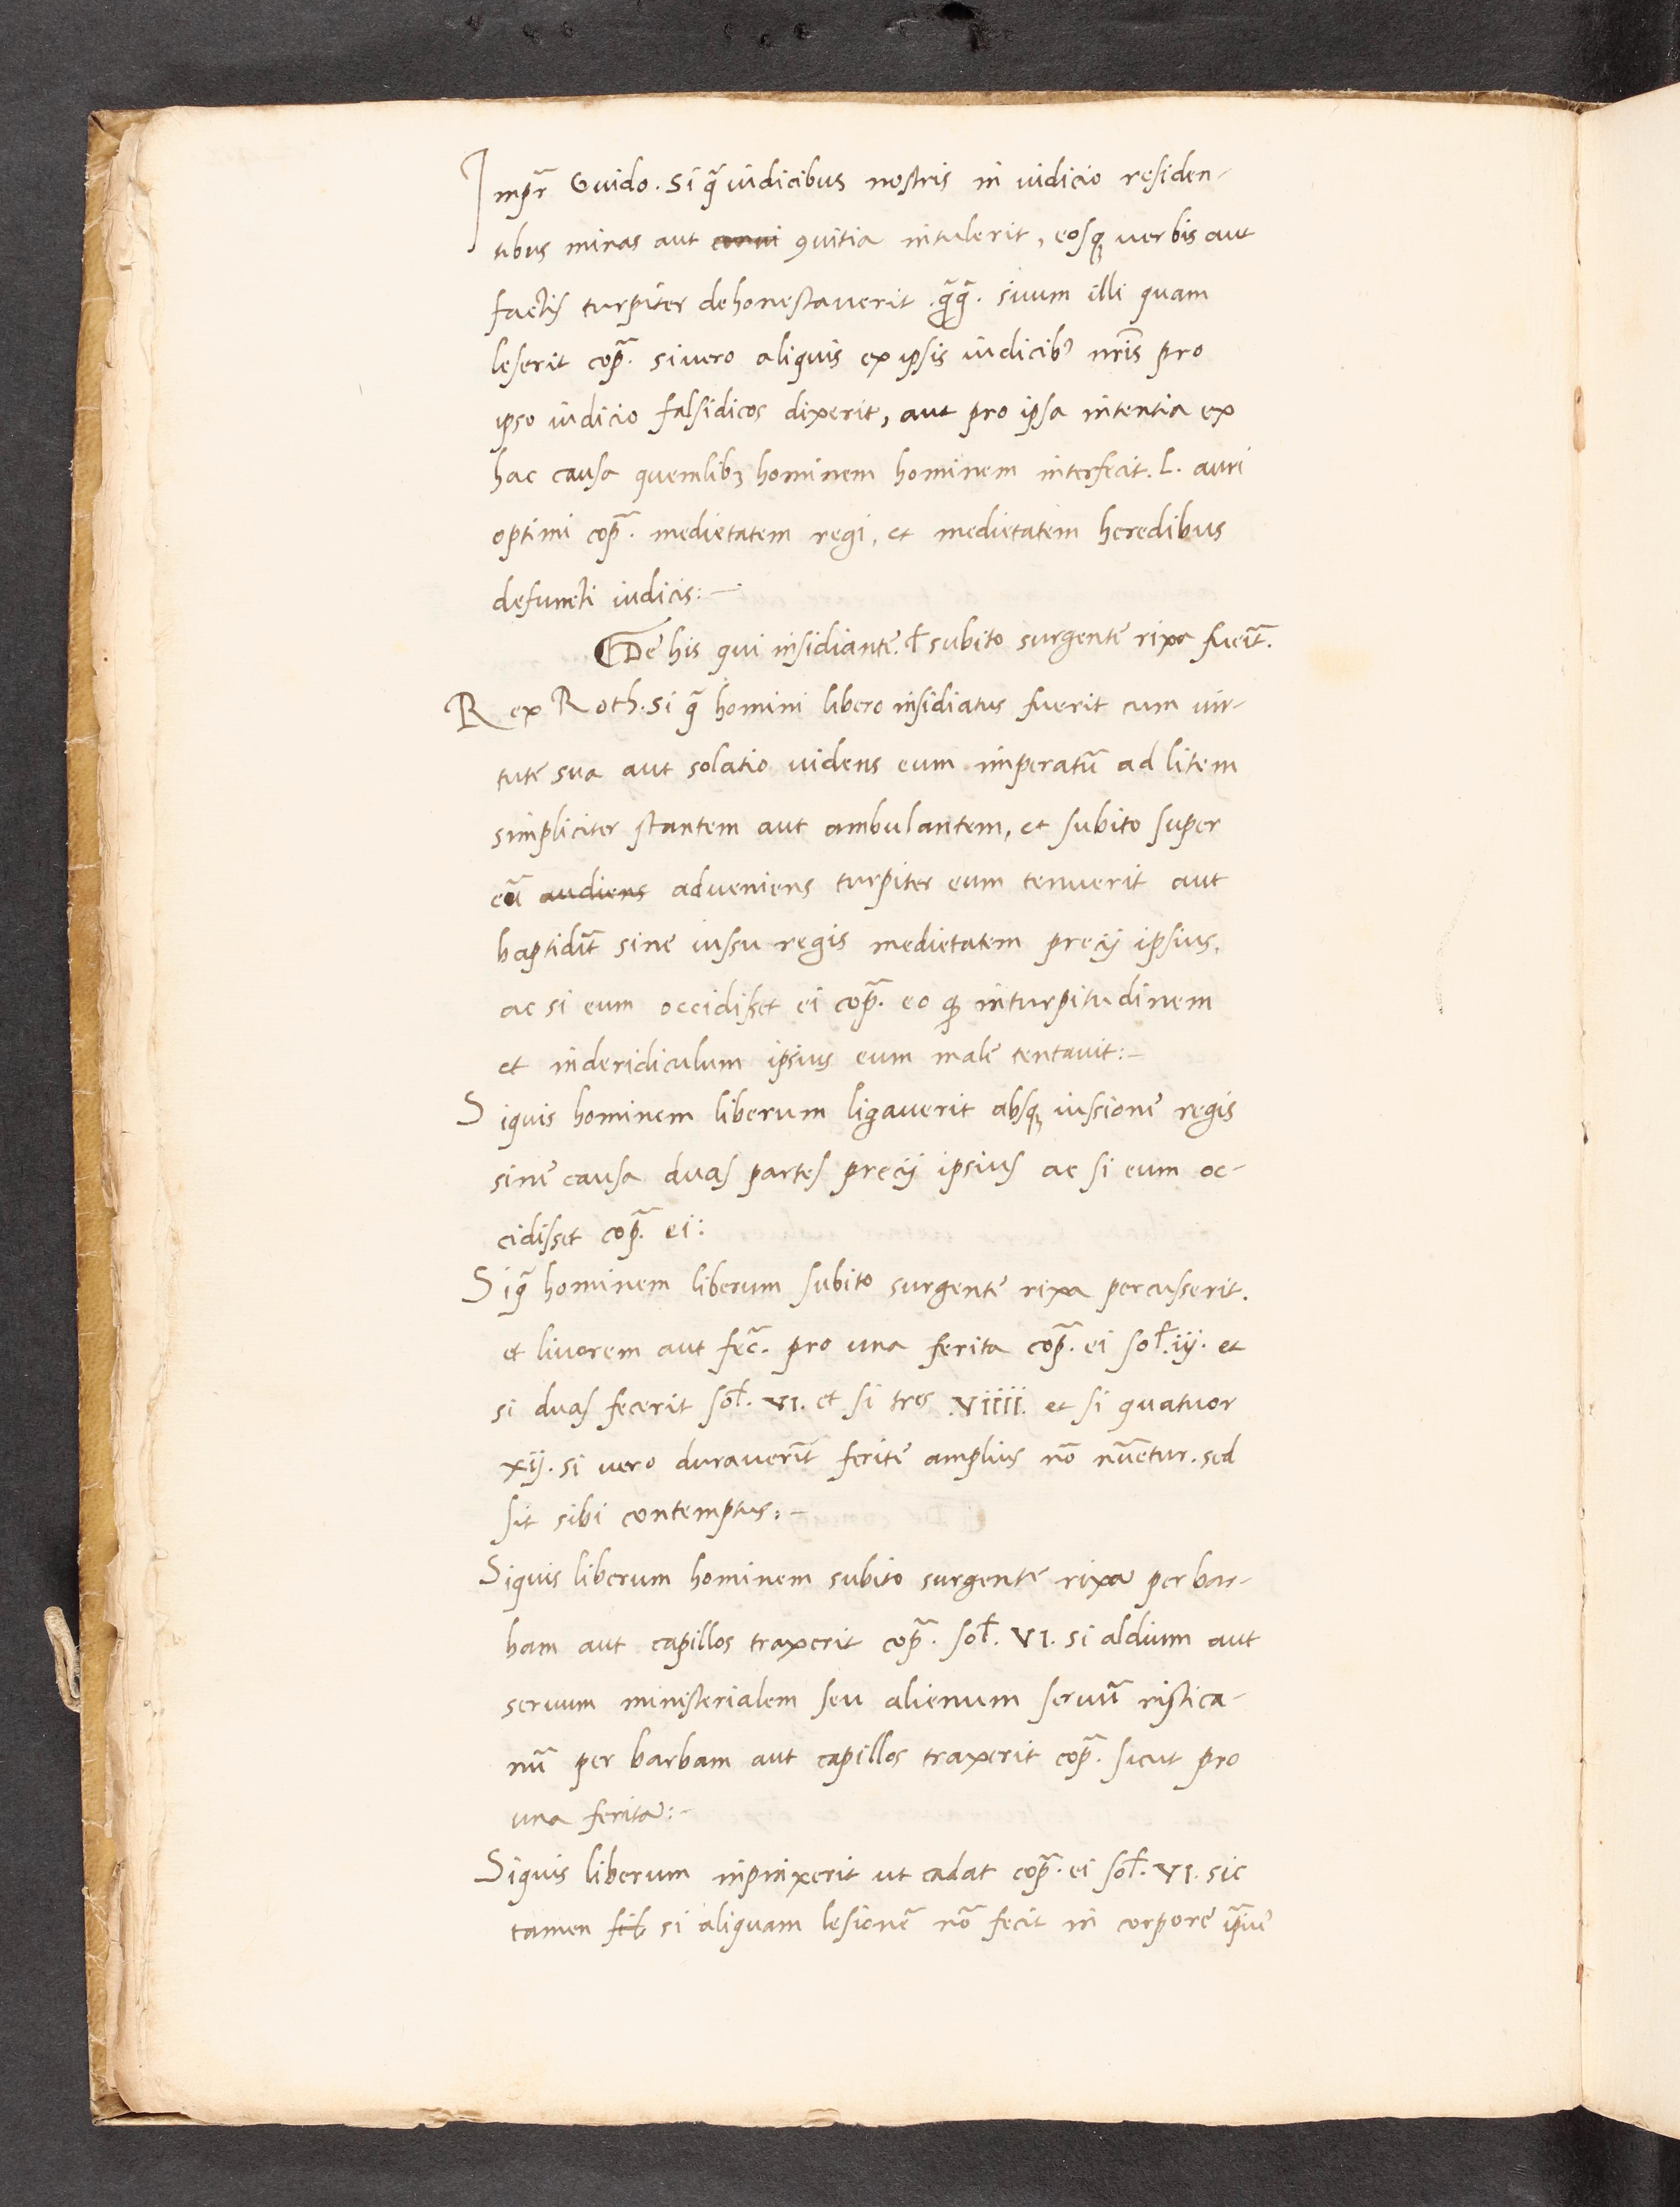 Imp̄r Guido. Si q̄ iudicibus nostris in iudicio residen-
tibus minas aut conui ꝯuitia intulerit, eosq; uerbis aut
factis turpiter dehonestauerit .q̄q̄. suum illi quam
leserit cōp̄. si uero aliquis ex ipsis iudicibꝰ nr̄is pro
ipso iudicio falsidicos dixerit, aut pro ipsa intentia ex
hac causa quemlibꝫ hominem hominem interfecit. L. auri
optimi cōp̄. medietatem regi, et medietatem heredibus
defuncti iudicis:-
De his qui insidiante. ł subito surgente rixa fuer̄it.
Rex Roth. Si q̄ homini libero insidiatus fuerit cum uir-
tute sua aut solatio uidens eum imperatū ad litem
simpliciter stantem aut ambulantem, et subito super
eū audiens adueniens turpiter eum tenuerit aut
baptidīt sine iussu regis medietatem precij ipsius,
ac si eum occidisset ei cōp̄. eo ꝙ inturpitudinem
et inderidiculum ipsius eum male tentauit:-
Siquis hominem liberum ligauerit absq; iussione regis
sine causa duas partes precij ipsius ac si eum oc-
cidisset cōp̄. ei:
Siq̄ hominem liberum subito surgente rixa percusserit.
et liuorem aut fec̄. pro una ferita cōp̄. ei soł. iij. et
si duas fecerit soł. VI. et si tres .VIIII. et si quatuor
xij. si uero durauer̄it ferite amplius nō nūetur. sed
sit sibi contemptus:-
Siquis liberum hominem subito surgente rixa per bar-
bam aut capillos traxerit cōp̄. soł. VI. si aldium aut
seruum ministerialem seu alienum seruū ristica-
nū per barbam aut capillos traxerit cōp̄. sicut pro
una ferita:-
Siquis liberum inpinxerit ut cadat cōp̄. ei soł. VI. sic
tamen si aliquam lesionē nō fecit in corpore